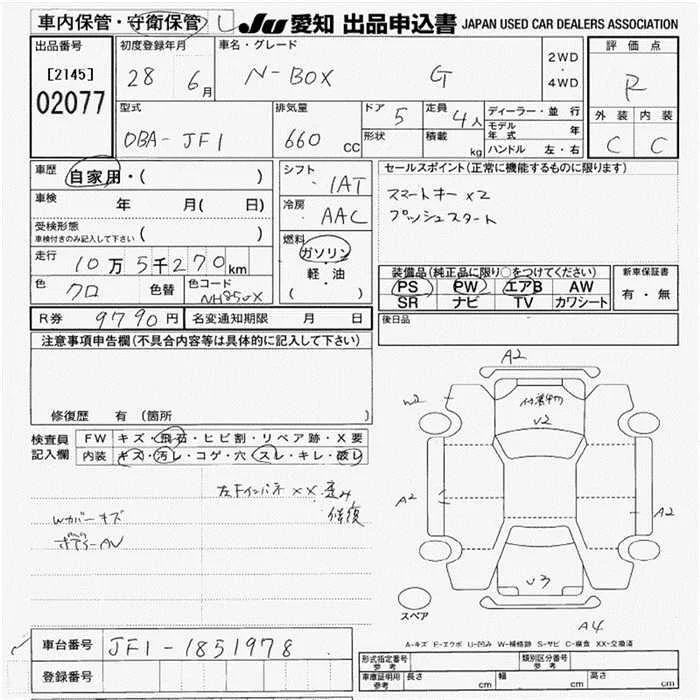 車内保管・守衛保管 U JU 愛知 出品申込書 JAPAN USED CAR DEALERS ASSOCIATION
出品番号 初度登録年月 車名・グレード 評価点
[2145] 28 6月 N-BOX G 2WD・4WD R
02077
型式 排気量 ドア 5 定員 4人 ディーラー・並行 外装 内装
OBA-JF1 660cc 形状 積載 kg モデル年式 年 C C
ハンドル 左・右
車歴 自家用・( ) シフト ・IAT セールスポイント(正常に機能するものに限ります)
車検 年 月( 日) 冷房 AAC スマートキーx2
プッシュスタート
受検形態 車検付きのみ記入して下さい ( ) 燃料 ガソリン・軽油 ( )
走行 10万5千270km 装備品(純正品に限り○をつけてください) 新車保証書
色 クロ 色替 色コード NH850X PS PW エアB AW 有・無
SR ナビ TV カワシート
R券 9790円 名変通知期限 月 日 後日品
注意事項申告欄(不具合内容等は具体的に記入して下さい)
A2
V2
修復歴 有(箇所 )
検査員記入欄 FW キズ・飛石・ヒビ割・リペア跡・X要
内装 キズ・汚レ・コゲ・穴・スレ・キレ・破レ
左Fインパネ XX 歪み
修復
Wカバーキズ
A2 A2
V3
スペア A4
車台番号 JF1-1851978
A-キズ E-エクボ U-凹み W-補修跡 S-サビ C-腐食 XX-交換済
登録番号
形式指定番号 参考 類別区分番号 参考
車庫証明用 参考 長さ cm 幅 cm 高さ cm